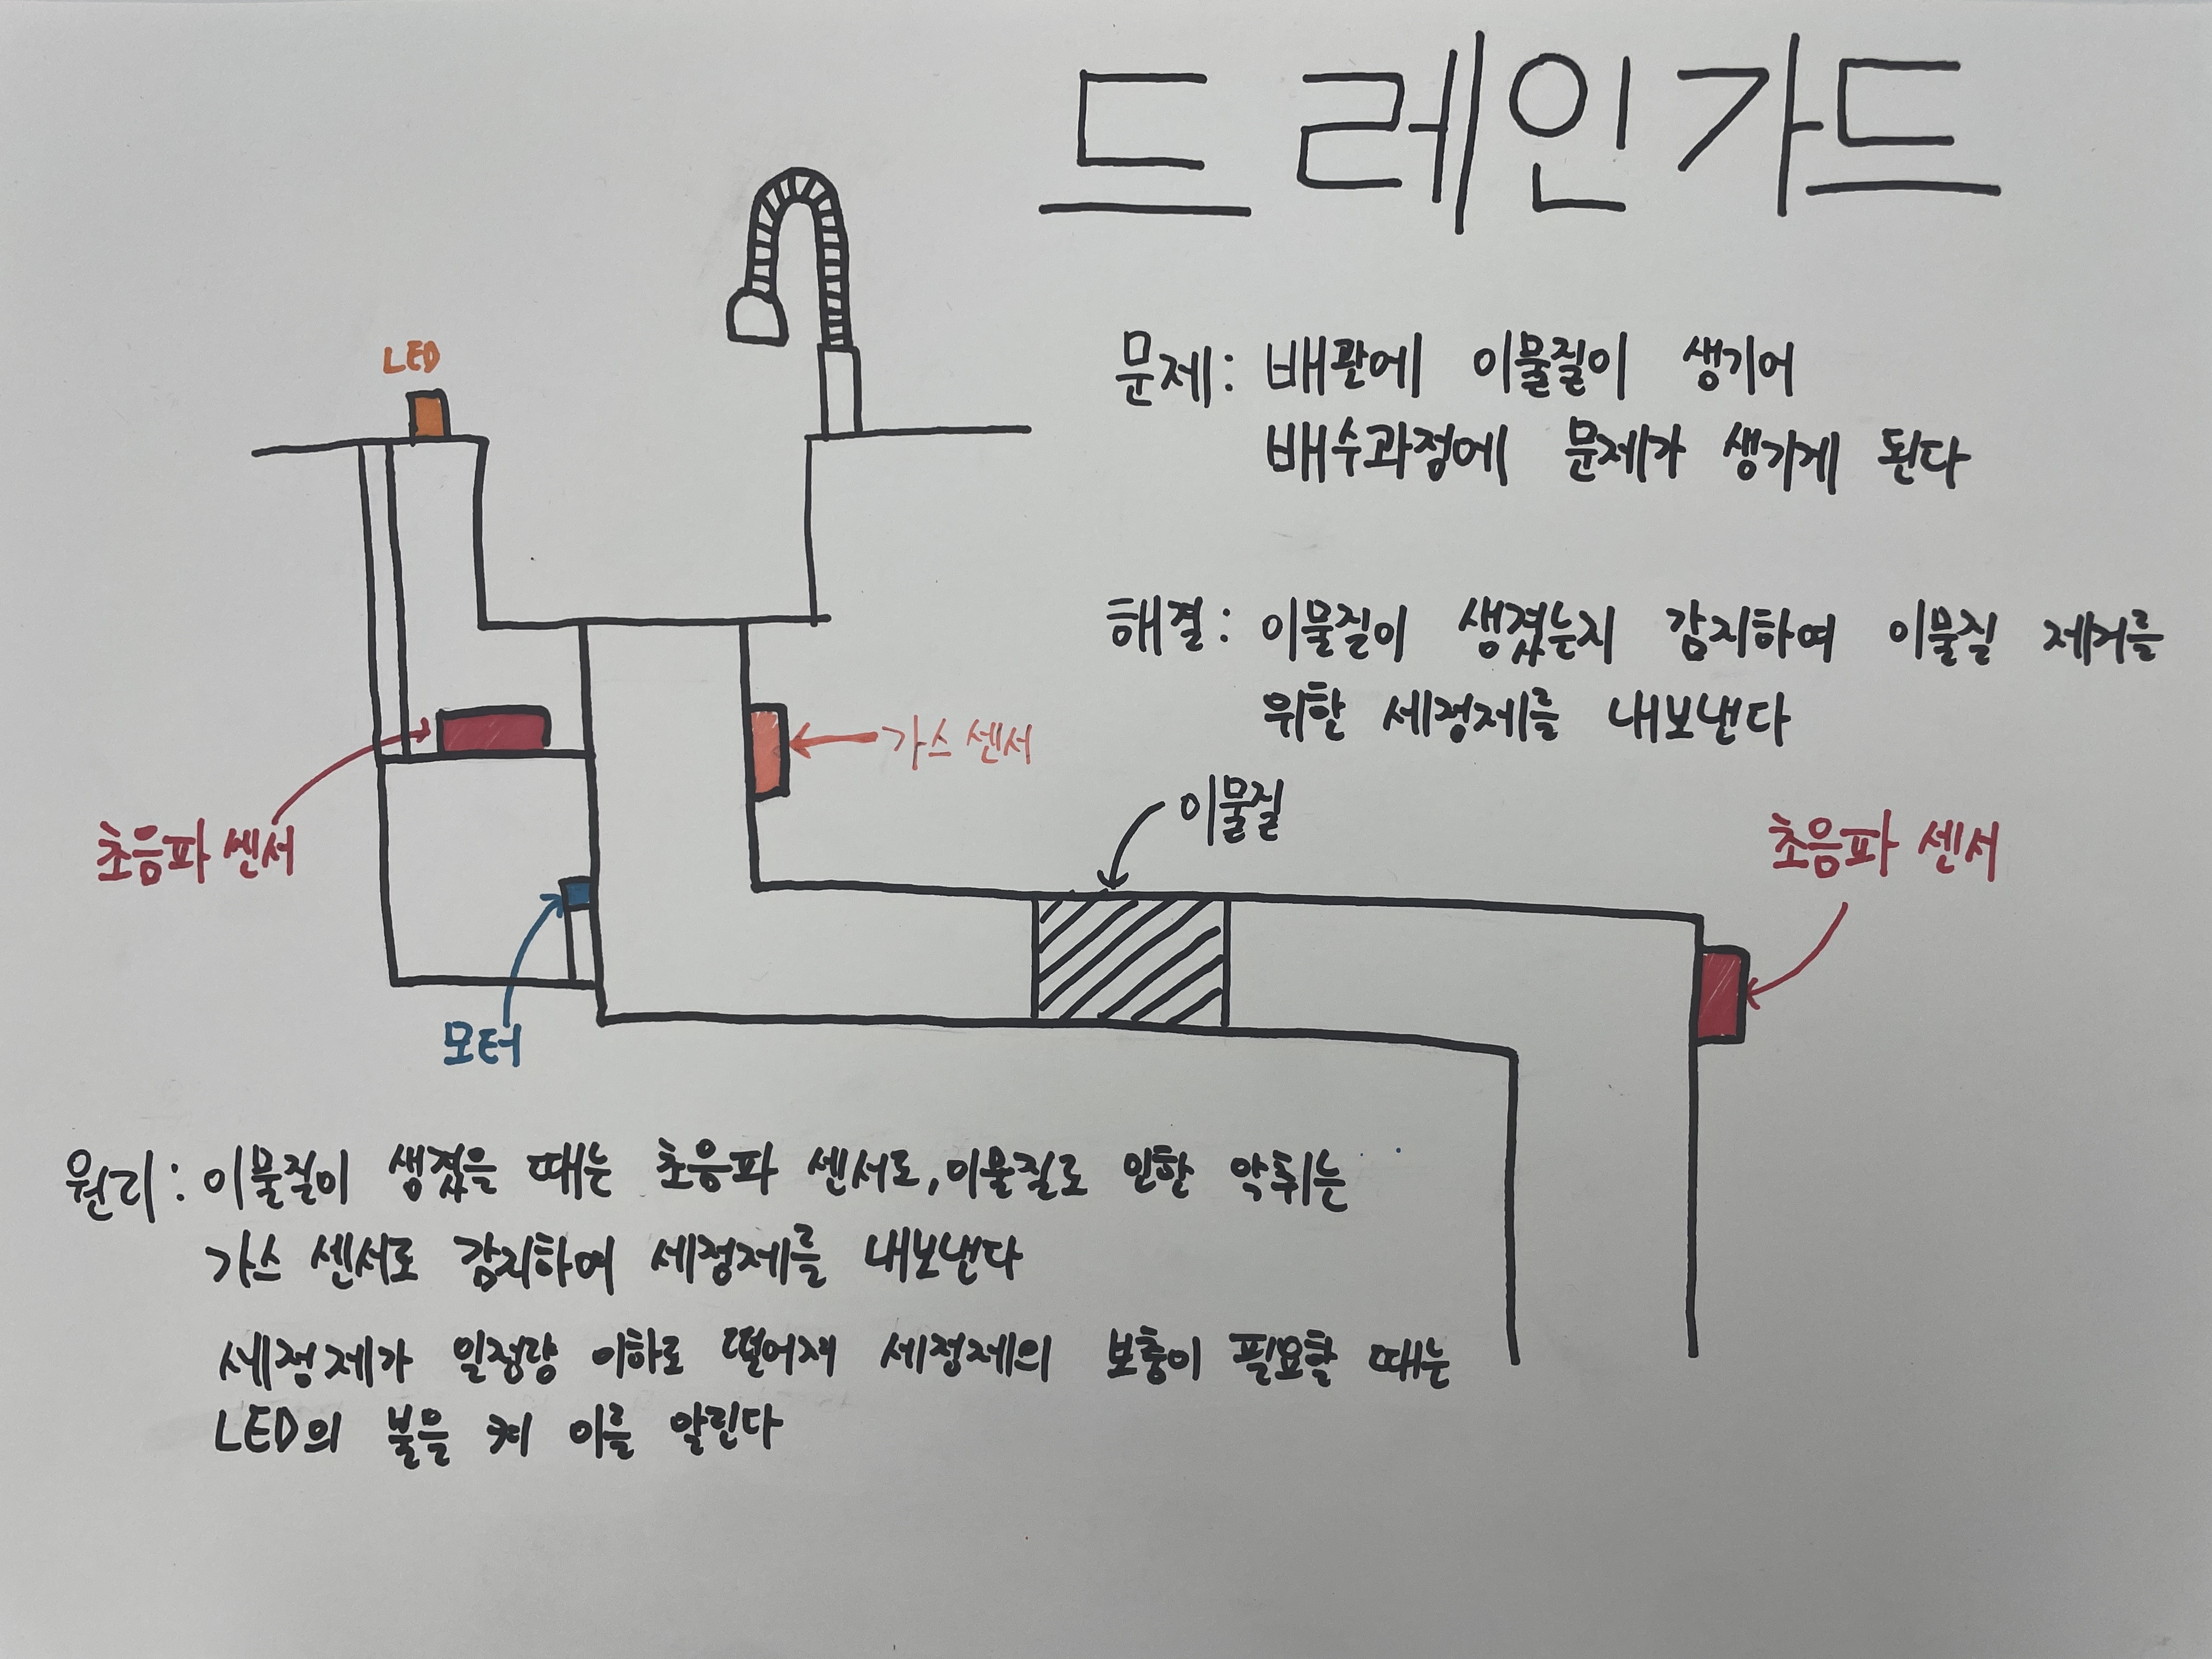 드레인가드
LED
문제: 배관에 이물질이 생기어
배수과정에 문제가 생기게 된다
해결: 이물질이 생겼는지 감지하여 이물질 제거를
위한 세정제를 내보낸다
가스 센서
이물질
초음파 센서
초음파 센서
모터
원리: 이물질이 생겼을 때는 초음파 센서로, 이물질로 인한 악취는
가스 센서로 감지하여 세정제를 내보낸다
세정제가 일정량 이하로 떨어져 세정제의 보충이 필요할 때는
LED의 불을 켜 이를 알린다